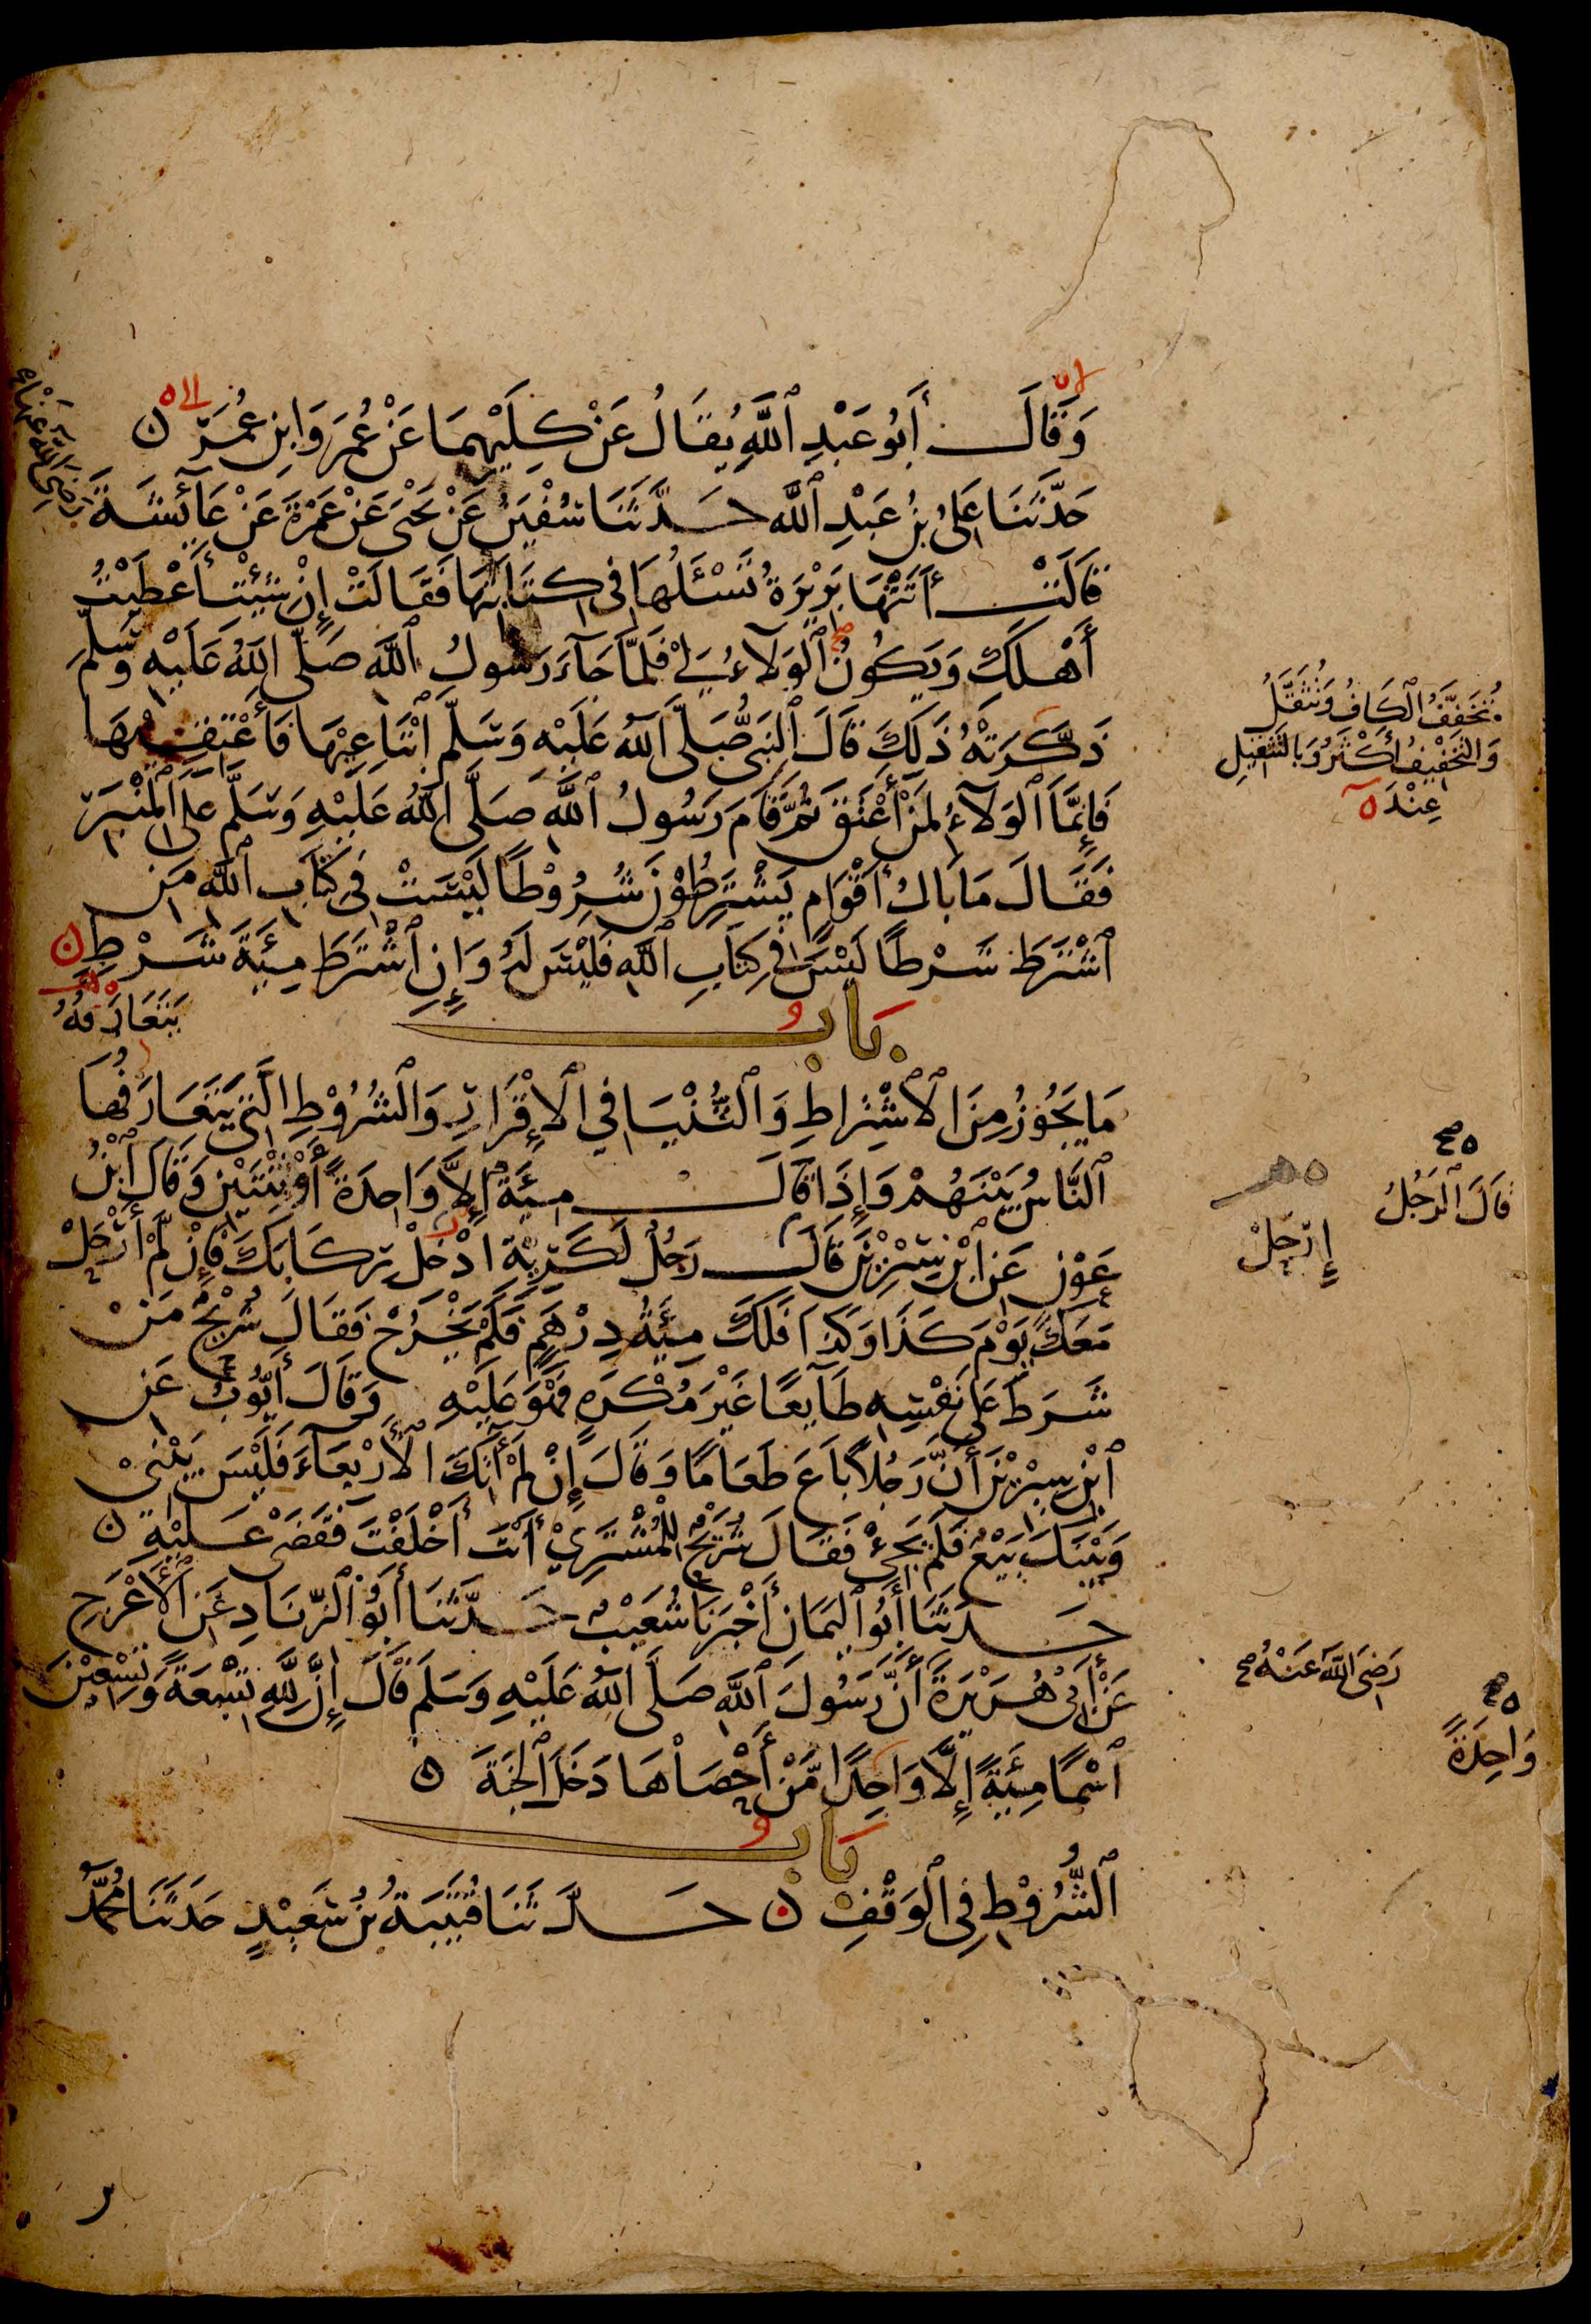 وَقَالَ أَبُو عَبْدِ ٱللَّهِ يُقَالُ عَنْ كِلَيْهِمَا عَنْ عُمَرَ وَابْنِ عُمَرَ
حَدَّثَنَا عَلِيُّ بْنُ عَبْدِ ٱللَّهِ حَدَّثَنَا سُفْيَنُ عَنْ يَحْيَى عَنْ عَمْرَةَ عَنْ عَائِشَةَ
رَضِيَ اللَّهُ عَنْهَا
قَالَتْ أَتَتْهَا بَرِيْرَةُ تَسْئَلُهَا فِي كِتَابَتِهَا فَقَالَتْ إِنْ شِئْتِ أَعْطَيْتُ
أَهْلَكِ وَيَكُونُ ٱلْوَلَآءُ لِيْ فَلَمَّا جَآءَ رَسُولُ ٱللَّهِ صَلَّى اللَّهُ عَلَيْهِ وَسَلَّمَ
ذَكَّرَتْهُ ذَلِكَ قَالَ ٱلنَّبِيُّ صَلَّى اللَّهُ عَلَيْهِ وَسَلَّمَ ٱبْتَاعِيْهَا فَأَعْتِقِيْهَا
فَإِنَّمَا ٱلْوَلَآءُ لِمَنْ أَعْتَقَ ثُمَّ قَامَ رَسُولُ ٱللَّهِ صَلَّى اللَّهُ عَلَيْهِ وَسَلَّمَ عَلَى ٱلْمِنْبَرِ
فَقَالَ مَا بَالُ أَقْوَامٍ يَشْتَرِطُوْنَ شُرُوْطًا لَيْسَتْ فِي كِتَابِ ٱللَّهِ مَنِ
ٱشْتَرَطَ شَرْطًا لَيْسَ فِي كِتَابِ ٱللَّهِ فَلَيْسَ لَهُ وَإِنِ ٱشْتَرَطَ مِئَةَ شَرْطٍ
بَابُ
مَا يَجُوْزُ مِنَ ٱلْاشْتِرَاطِ وَٱلثُّنْيَا فِي ٱلْإِقْرَارِ وَٱلشُّرُوْطِ الَّتِي يَتَعَارَفُهَا
يَتَعَارَفُهُ
ٱلنَّاسُ بَيْنَهُمْ وَإِذَا قَالَ مِئَةٌ إِلَّا وَاحِدَةً أَوْ ثِنْتَيْنِ وَقَالَ ٱبْنُ
عَوْنٍ عَنِ ٱبْنِ سِيْرِيْنَ قَالَ رَجُلٌ لِكَرِيِّهِ ادْخِلْ رِكَابَكَ فَإِنْ لَمْ أَرْحَلْ
مَعَكَ يَوْمَ كَذَا وَكَذَا فَلَكَ مِئَةُ دِرْهَمٍ فَلَمْ يَخْرُجْ فَقَالَ شُرَيْحٌ مَنْ
شَرَطَ عَلَى نَفْسِهِ طَآئِعًا غَيْرَ مُكْرَهٍ فَهْوَ عَلَيْهِ وَقَالَ أَيُّوبُ عَنِ
ٱبْنِ سِيْرِيْنَ أَنَّ رَجُلًا بَاعَ طَعَامًا وَقَالَ إِنْ لَمْ آتِكَ ٱلْأَرْبِعَآءَ فَلَيْسَ بَيْنِيْ
وَبَيْنَكَ بَيْعٌ فَلَمْ يَجِئْ فَقَالَ شُرَيْحٌ لِلْمُشْتَرِيْ أَنْتَ أَخْلَفْتَ فَقَضَى عَلَيْهِ
حَدَّثَنَا أَبُو ٱلْيَمَانِ أَخْبَرَنَا شُعَيْبٌ حَدَّثَنَا أَبُو ٱلزِّنَادِ عَنِ ٱلْأَعْرَجِ
عَنْ أَبِي هُرَيْرَةَ أَنَّ رَسُولَ ٱللَّهِ صَلَّى اللَّهُ عَلَيْهِ وَسَلَّمَ قَالَ إِنَّ لِلَّهِ تِسْعَةً وَتِسْعِيْنَ
ٱسْمًا مِئَةً إِلَّا وَاحِدًا مَنْ أَحْصَاهَا دَخَلَ ٱلْجَنَّةَ
بَابُ
ٱلشُّرُوْطِ فِي ٱلْوَقْفِ حَدَّثَنَا قُتَيْبَةُ بْنُ سَعِيْدٍ حَدَّثَنَا مُحَمَّدُ
تُخَفَّفُ ٱلْكَافُ وَتُثَقَّلُ
وَالتَّخْفِيْفُ أَكْثَرُ وَبِالتَّثْقِيْلِ
عِنْدَ ه
قَالَ ٱلرَّجُلُ
إِرْحَلْ
رَضِيَ اللَّهُ عَنْهُ
وَاحِدَةً